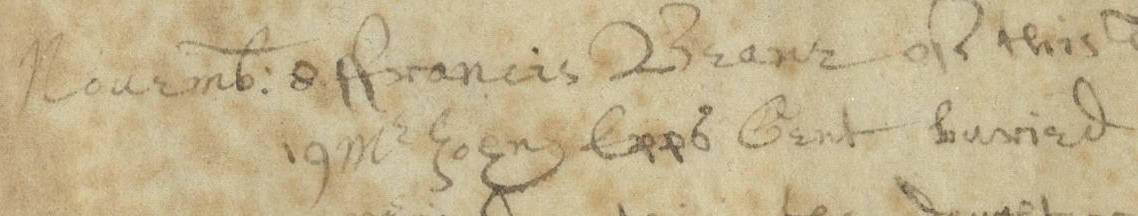 Nouemb: 8 ffrancis Beane of this
19 Mr John Epps Gent buried